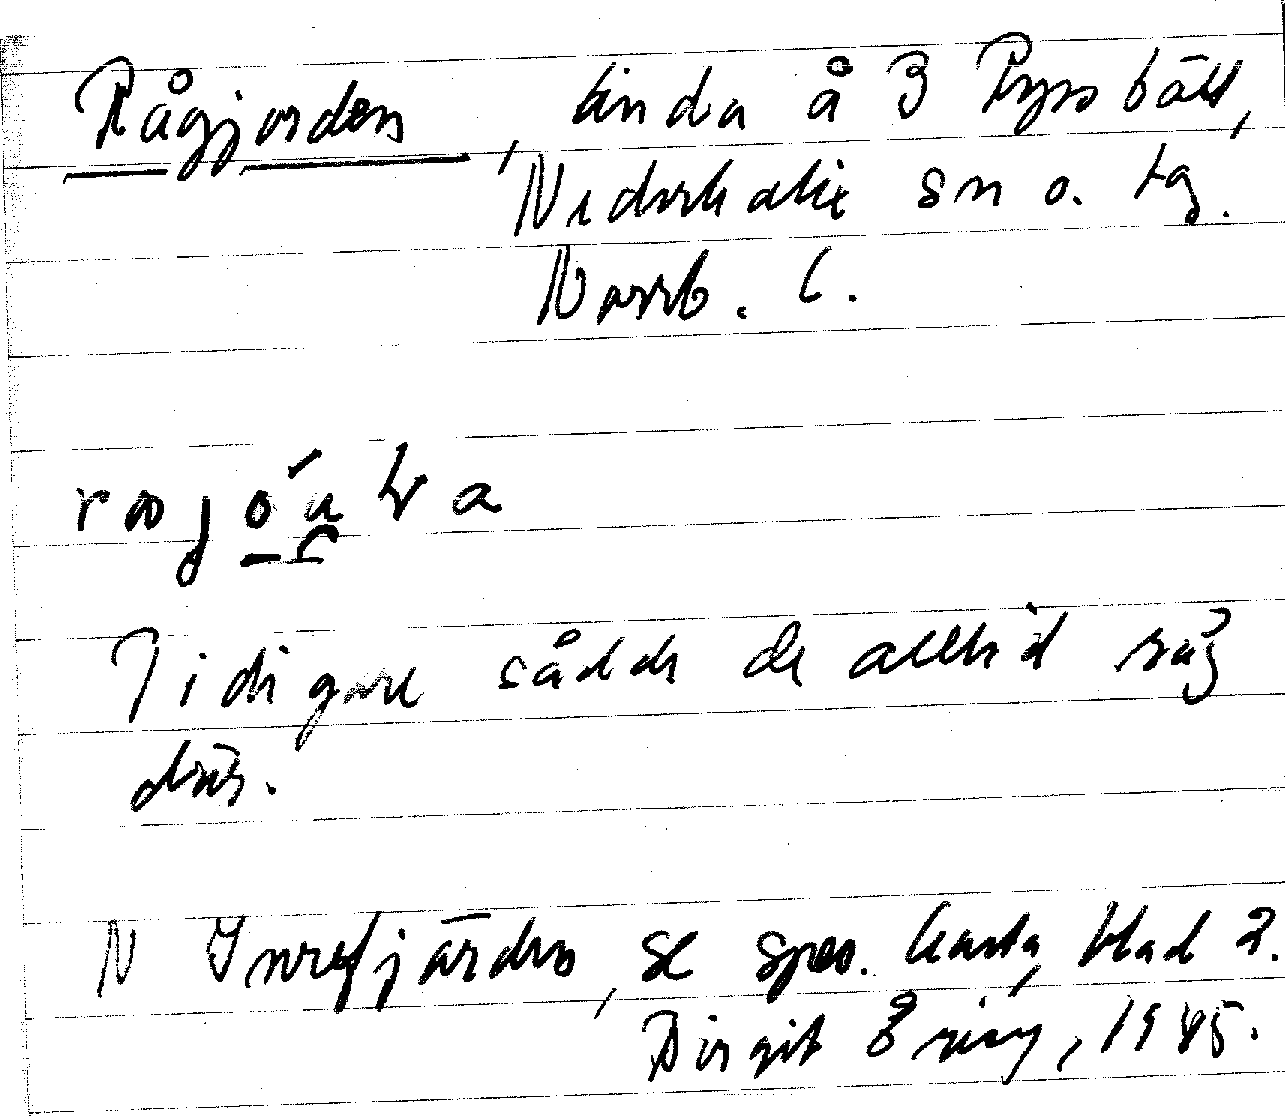 Rågjorden, linda å 3 Ryssbält,
Nederkalix sn o. tg.
Norrb. l.
Tidigare sådde de alltid råg
där.
N Inrefjärden, se spec. karta, blad 2.
Birgit 1945.